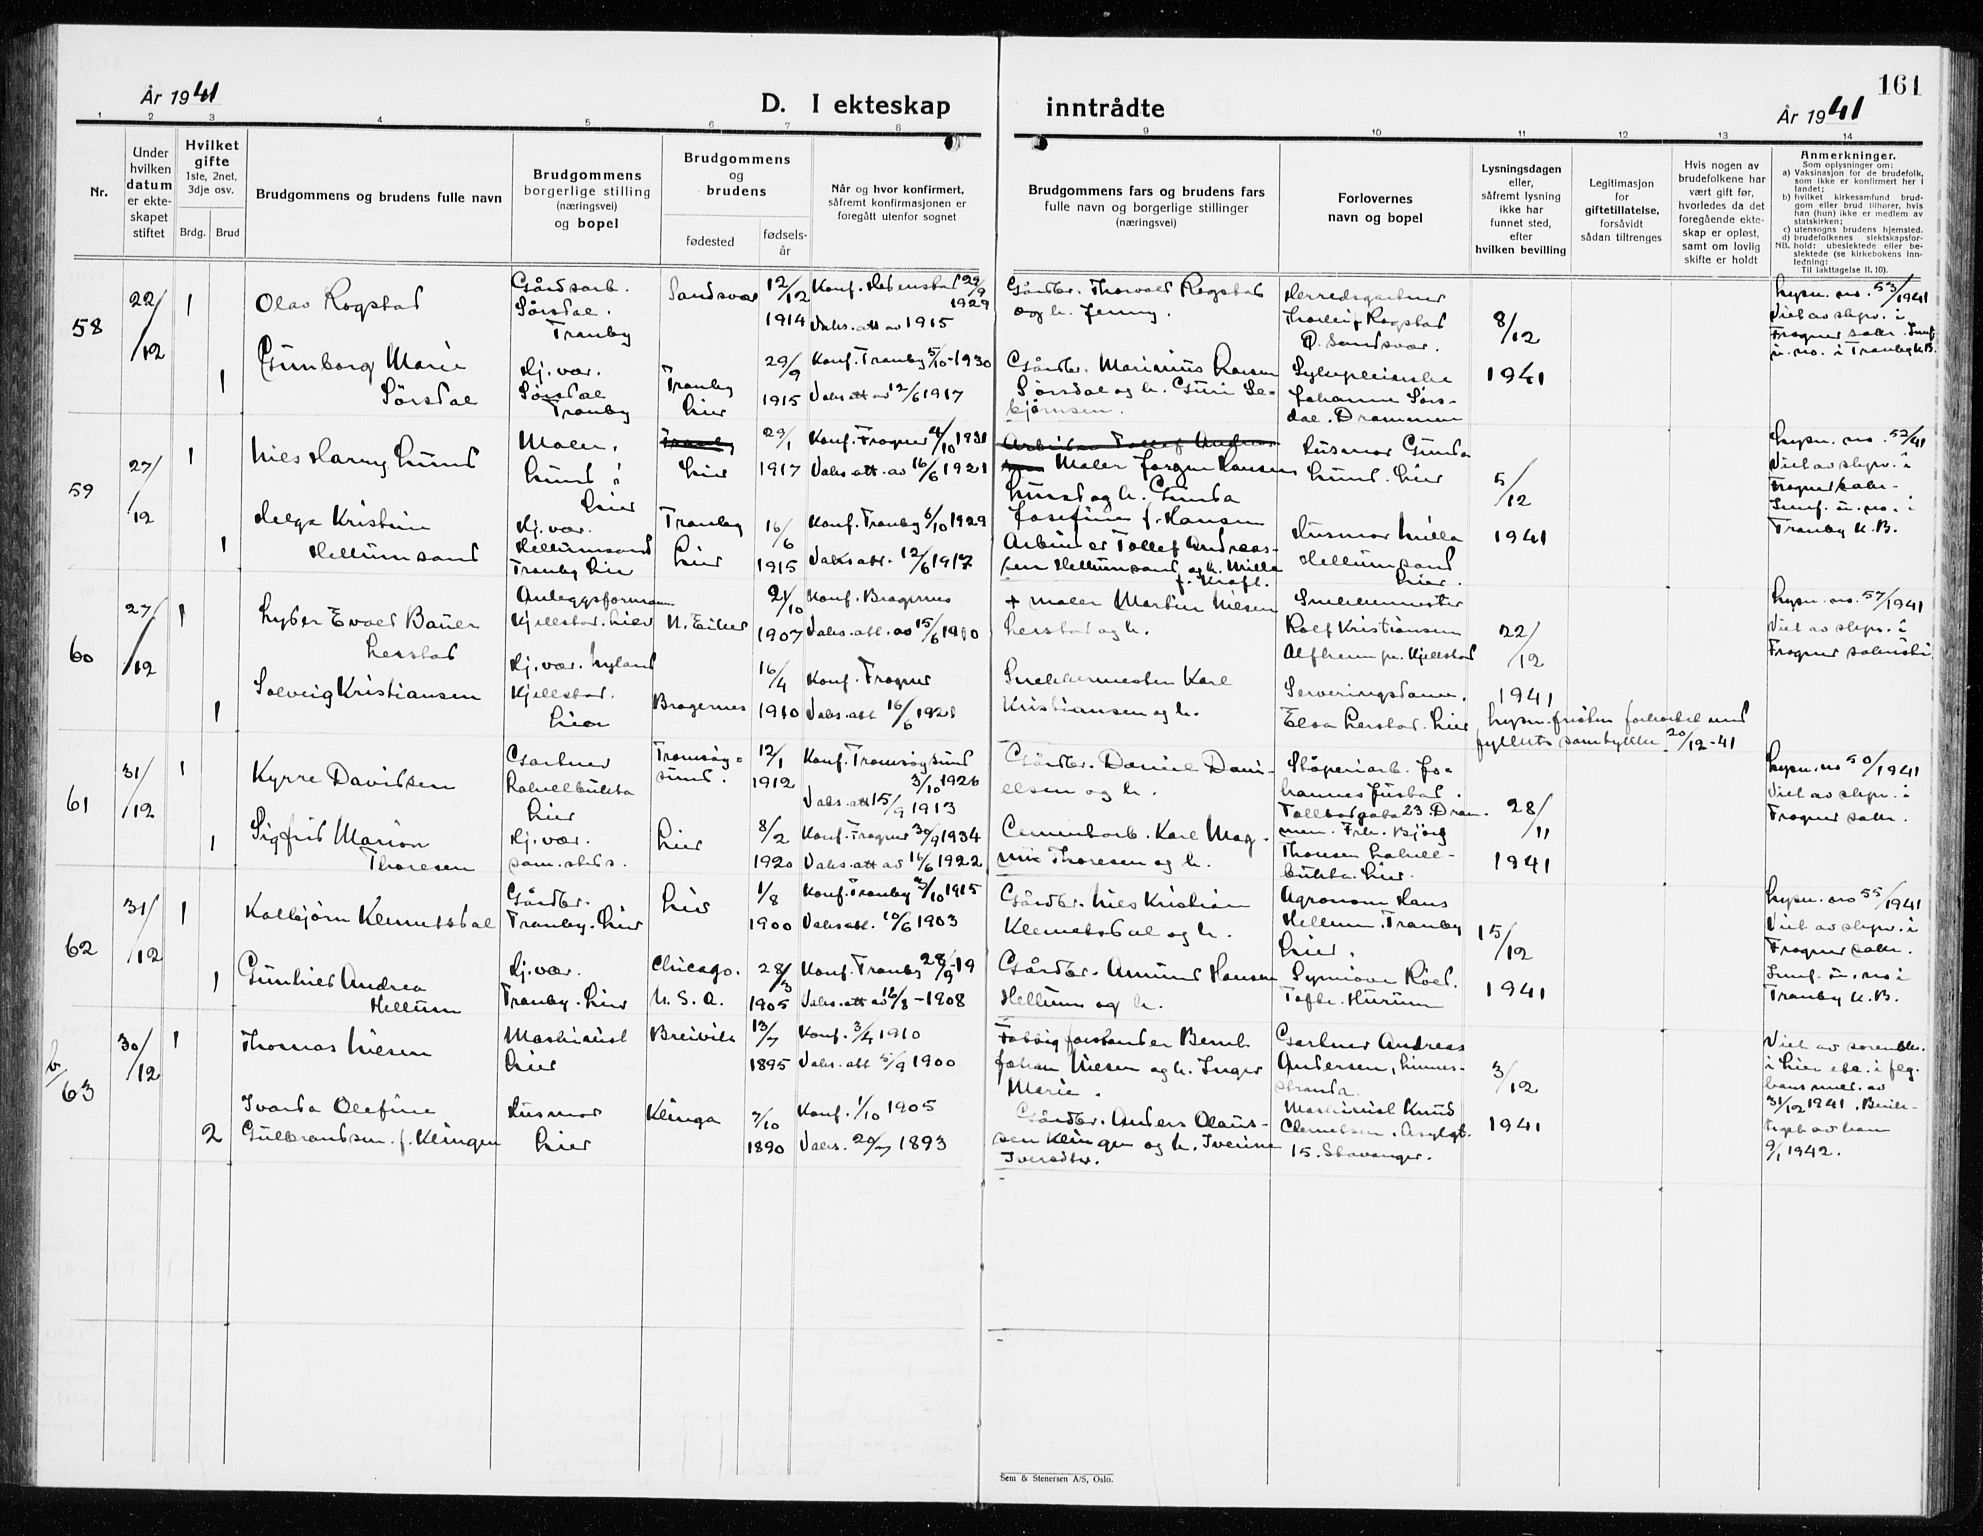 161
År 1941
D. I ekteskap inntrådte
År 1941
1 2 3 4 5 6 7 8 9 10 11 12 13 14
Nr.
Under
hvilken
datum
er ekte-
skapet
stiftet
Hvilket
gifte
1ste, 2net,
3dje osv.
Brdg. Brud
Brudgommens og brudens fulle navn
Brudgommens
borgerlige stilling
(næringsvei)
og bopel
Brudgommens
og
brudens
fødested
fødsels-
år
Når og hvor konfirmert,
såfremt konfirmasjonen er
foregått utenfor sognet
Brudgommens fars og brudens fars
fulle navn og borgerlige stillinger
(næringsvei)
Forlovernes
navn og bopel
Lysningsdagen
eller,
såfremt lysning
ikke har
funnet sted,
efter
hvilken bevilling
Legitimasjon
for
giftetillatelse,
forsåvidt
sådan tiltrenges
Hvis nogen av
brudefolkene har
vært gift før,
hvorledes da det
foregående ekte-
skap er opløst,
samt om lovlig
skifte er holdt
Anmerkninger.
Som oplysninger om:
a) Vaksinasjon for de brudefolk,
som ikke er konfirmert her i
landet;
b) hvilket kirkesamfund brud-
gom eller brud tilhører, hvis
han (hun) ikke er medlem av
statskirken;
c) utensogns brudens hjemsted.
d) brudefolkenes slektskapsfor-
NB. hold: ubeslektede eller be-
slektede (se kirkebokens inn-
ledning:
Til iakttagelse II. 10).
58
22/12
1
Olav Rogstad
Gårdsarb.
Sørsdal.
Tranby
Sandsvær
12/12
1914
Konf. Hedenstad 29/9
1929
Vaks. att av 1915
Gårdbr. Thorvald Rogstad
og h. Jenny.
Herredsgartner
Thorleif Rogstad
Ø. Sandsvær.
8/12
1941
lysn. no. 53/1941
Viet av slspr. i
Frogner sakr. Innf.
u. no. i Tranby K.B.
1
Gunborg Marie
Sørsdal
Hj. vær.
Sørsdal
Tranby
Tranby
Lier
29/9
1915
Konf. Tranby 5/10-1930
Vaks att av 12/6 1917
Gårdbr. Marinius Larsen
Sørsdal og h. Guri Se-
bjørnsen.
Sykepleierske
Johanne Sørs-
dal. Drammen
59
27/12
1
Nils Harry Lund
Maler.
Lund i
Lier
Tranby
Lier
29/1
1917
Konf. Frogner 4/10 1931
Vaks att. av 16/6 1921
Arbeider Tollef Andreas-
sen Maler Jørgen Hansen
Lund og h. Gunda
Josefine f. Hansen
Husmor Gunda
Lund. Lier
5/12
1941
lysn. no. 52/41
Viet av slspr. i
Frogner sakr.
Innf. u. no. i
Tranby K.B.
1
Helga Kristine
Hellumsand
Hj. vær.
Hellumsand
Tranby Lier
Tranby
Lier
16/6
1915
Konf. Tranby 6/10 1929
Vaks att. 12/6 1917
Arbeider Tollef Andreas-
sen Hellumsand og h. Milla
f. Kraft.
Husmor Milla
Hellumsand
Lier.
60
27/12
1
Lyder Evald Bauer
Lerstad
Anleggsformann
Kjellstad. Lier
N. Eiker
21/10
1907
Konf. Bragernes
Vaks. att. av 15/6 1910
+ maler Martin Nilsen
Lerstad og h.
Snekkermester
Rolf Kristiansen
Alfheim pr. Kjellstad
22/12
1941
lysn. no. 57/1941
Viet av slspr. i
Frogner sakristi.
1
Solveig Kristiansen
Hj. vær. Nyland
Kjellstad.
Lier
Bragernes
16/4
1910
Konf. Frogner
Vaks. att 16/6 1921
Snekkermester Karl
Kristiansen og h.
Serveringsdame.
Elsa Lerstad. Lier
lysn. fristen forkortet med
fylkets samtykke 20/12-41
61
31/12
1
Kyrre Davidsen
Gartner
Lahellbukta
Lier
Tromsøy-
sund.
12/1
1912
Konf. Tromsøysund
3/10 1926
Vaks. att 15/9 1913
Gårdbr. Daniel Dani-
elsen og h.
Støperiarb. Jo-
hannes Justad.
Tollbodgata 23. Dram-
men. Frk. Bjørg
Thoresen Lahell-
bukta. Lier.
28/11
1941
lysn. no 50/1941
Viet av slspr. i
Frogner sakr.
1
Sigfrid Marion
Thoresen
Hj. vær.
sam. steds.
Lier
8/2
1920
Konf. Frogner 30/9 1934
Vaks. att av 16/6 1922
Cementarb. Karl Mag-
nus Thoresen og h.
62
31/12
1
Kolbjørn Klemetsdal
Gårdbr.
Tranby. Lier
Lier
1/8
1900
Konf. Tranby 3/10 1915
Vaks att. 10/6 1903
Gårdbr. Nils Kristian
Klemetsdal og h.
Agronom Hans
Hellum. Tranby
Lier.
15/12
1941
lysn. no 55/1941
Viet av slspr. i
Frogner sakr.
Innf. u. no i
Tranby K.B.
1
Gunhild Andrea
Hellum
Hj. vær.
Tranby. Lier
Chicago.
U. S. A.
28/3
1905
Konf. Tranby 28/9-19
Vaks. att av 16/8-1908
Gårdbr. Amund Hansen
Hellum og h.
Synnøve Roed.
Tofte. Hurum
b/63
30/12
1
Thomas Nilsen
Maskinist
Lier
Breivik
13/7
1895
Konf. 3/4 1910
Vaks. att 5/9 1900
Fattigforstander Bernh.
Johan Nilsen og h. Inger
Marie.
Gartner Andreas
Andersen, Linnes-
stranda
3/12
1941
Viet av sorenskr.
i Lier etc. i flg.
hans med. av
31/12 1941.
9/1 1942.
2
Ivarda Olefine
Gulbrandsen. f. Klingen
Husmor
Lier
Klinga
7/10
1890
Konf. 1/10 1905
Vaks. 29/7 1893
Gårdbr. Anders Olaus-
sen Klingen og h. Iverine
Iversdtr.
Maskinist Knud
Clemetsen. Asylgt.
15. Stavanger.
Sem & Stenersen A/S, Oslo.